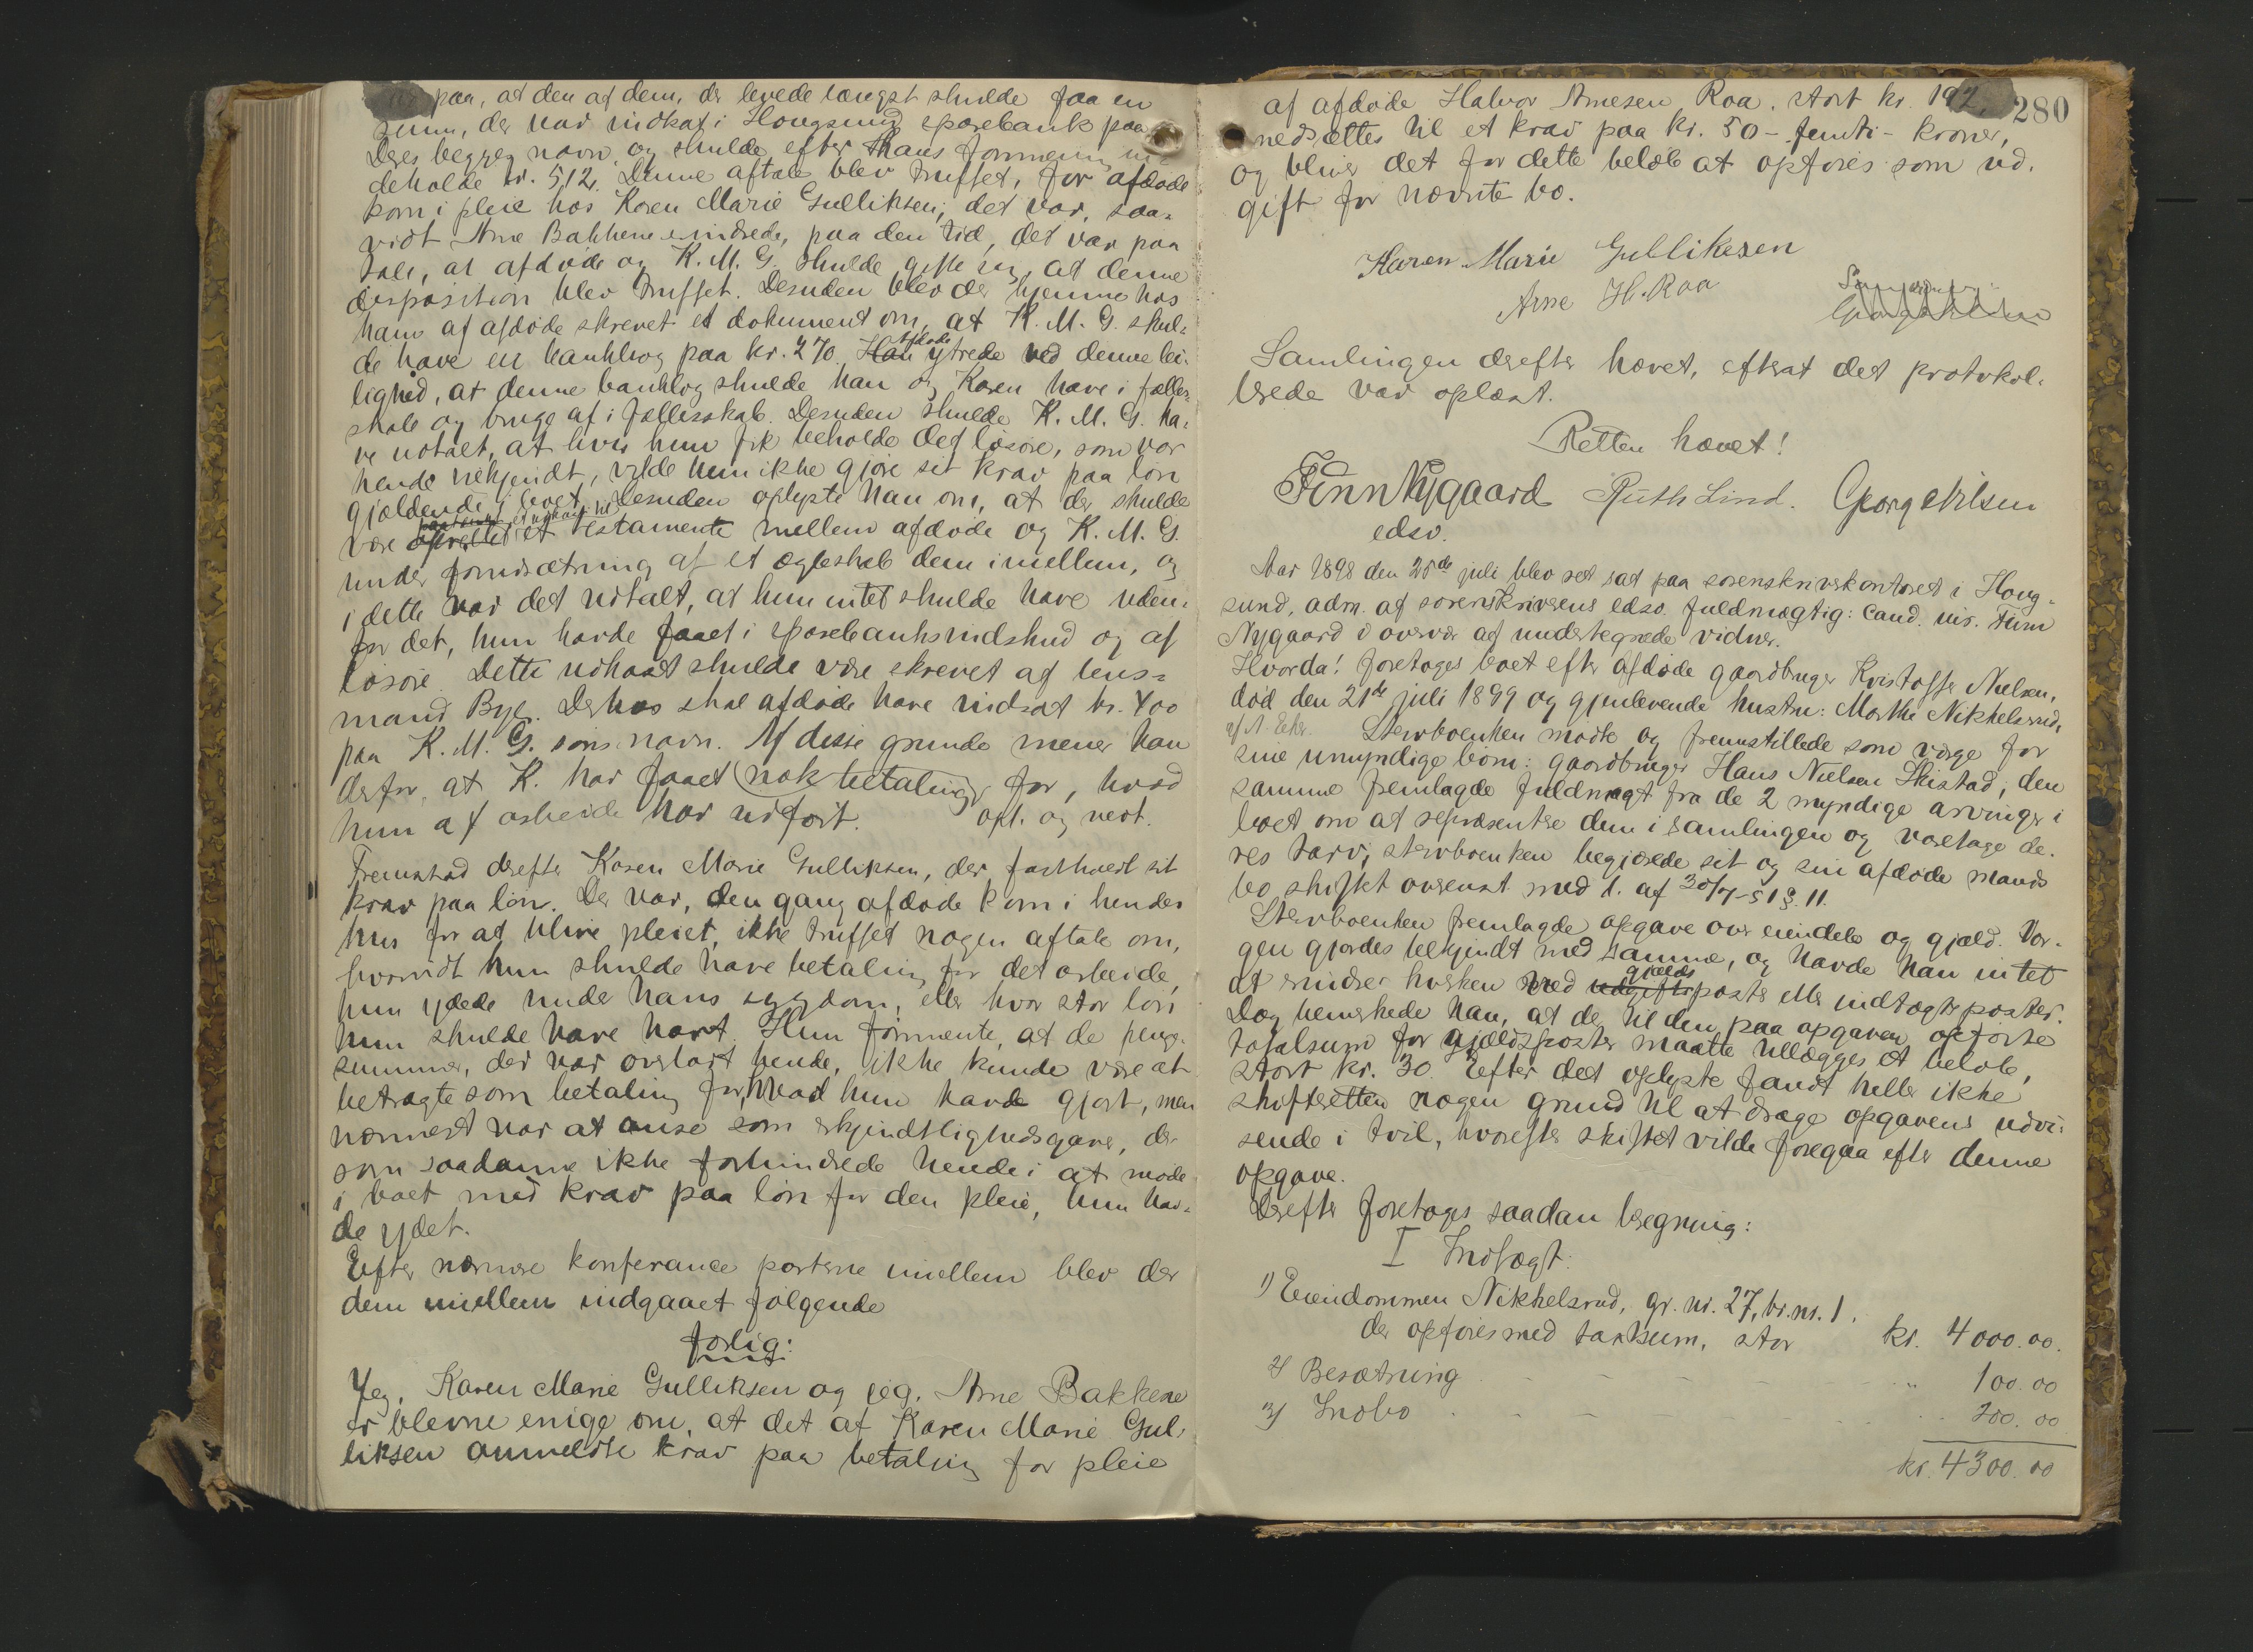 paa, at den af dem, der levede længst skulde faa en
sum, der var indsat i Hougsund sparebank paa
deres begges navn, og skulde efter hans formening in-
deholde kr. 512. Denne aftale blev truffet, før afdøde
kom i pleie hos Karen Marie Gulliksen; det var, saa-
vidt Arne Bakkene erindrede, paa den tid, det var paa
tale, at afdøde og K. M. G. skulde gifte sig, at denne
disposition blev truffet. Desuden blev der hjemme hos
ham af afdøde skrevet et dokument om, at K. M. G. skul-
de have en bankbog paa kr. 270. Han afdøde ytrede ved denne lei-
lighed, at denne bankbog skulde han og Karen have i fælles-
skab og bruge af i fællesskab. Desuden skulde K. M. G. ha-
ve udtalt, at hvis hun fik beholde det løsøre, som var
hende tilkjendt, vilde hun ikke gjøre sit krav paa løn
gjældende i boet. Desuden oplyste han om, at der skulde
være oprettet et udkast til et testamente mellem afdøde og K. M. G.
under forudsætning af et ægteskab dem imellem, og
i dette var det udtalt, at hun intet skulde have uden-
for det, hun havde faaet i sparebanksindskud og af
løsøre. Dette udkast skulde være skrevet af lens-
mand Bye. Derhos skal afdøde have indsat kr. 400
paa K. M. G. søns navn. Af disse grunde mener han
derfor, at K. har faaet (nok betaling) for, hvad
hun af arbeide har udført. opl. og vedt.
Fremstod derefter Karen Marie Gulliksen, der fastholdt sit
krav paa løn. Der var, den gang afdøde kom i hendes
hus for at blive pleiet, ikke truffet nogen aftale om,
hvorvidt hun skulde have betaling for det arbeide,
hun ydede under hans sygdom, eller hvor stor løn
hun skulde have havt. Hun formente, at de penge-
summer, der var overladt hende, ikke kunde være at
betragte som betaling for, hvad hun havde gjort, men
nærmest var at anse som erkjendtlighedsgaver, der
som saadanne ikke forhindrede hende i at møde
i boet med krav paa løn for den pleie, hun hav-
de ydet.
Efter nærmere konferance parterne imellem blev der
dem imellem indgaaet følgende
forlig:
Jeg, Karen Marie Gulliksen og jeg, Arne Bakkene
er blevne enige om, at det af Karen Marie Gul-
liksen anmeldte krav paa betaling for pleie
280
af afdøde Halvor Arnesen Roa, stort kr. 192,
nedsættes til et krav paa kr. 50 - femti - kroner,
og bliver det for dette beløb at opføres som ud-
gift for nævnte bo.
Karen Marie Gullikesen
Arne H. Roa
Samlingen derefter hævet, efterat det protokol-
lerede var oplæst.
Retten hævet!
Finn Nygaard Ruth Lind. Georg Nilsen
edsv.
Aar 1898 den 25de juli blev ret sat paa sorenskriverkontoret i Houg-
sund, adm. af sorenskriverens edsv. fuldmægtig: cand. jur. Finn
Nygaard i overvær af undertegnede vidner.
Hvorda! foretoges boet efter afdøde gaardbruger Kristoffer Nielsen,
død den 21de juli 1899 og gjenlevende hustru: Marthe Nikkelsrud,
af N. Eker. Sterboenken mødte og fremstillede som værge for
sine umyndige børn: gaardbruger Hans Nielsen Skistad; den
samme fremlagde fuldmagt fra de 2 myndige arvinger i
boet om at repræsentere dem i samlingen og varetage de-
res tarv; sterboenken begjærede sit og sin afdøde mands
bo skiftet overenst. med l. af 30/7-51 § 11.
Sterboenken fremlagde opgave over eiendele og gjæld. Vær-
gen gjordes bekjendt med samme, og havde han intet
at erindre hverken ved udgifts gjældsposter eller indtægtsposter.
Dog bemerkede han, at der til den paa opgaven opførte
totalsum for gjældsposter maatte tillægges et beløb,
stort kr. 30. Efter det oplyste fandt heller ikke
skifteretten nogen grund til at drage opgavens udvi-
sende i tvil, hvorefter skiftet vilde foregaa efter denne
opgave.
Derefter foretoges saadan beregning:
I Indtægt:
1) Eiendommen Nikkelsrud, gr. nr. 27, br. nr. 1.
der opføres med taxtsum, stor kr. 4000.00.
2) Besætning " 100.00
3) Indbo 200.00
kr. 4300.00